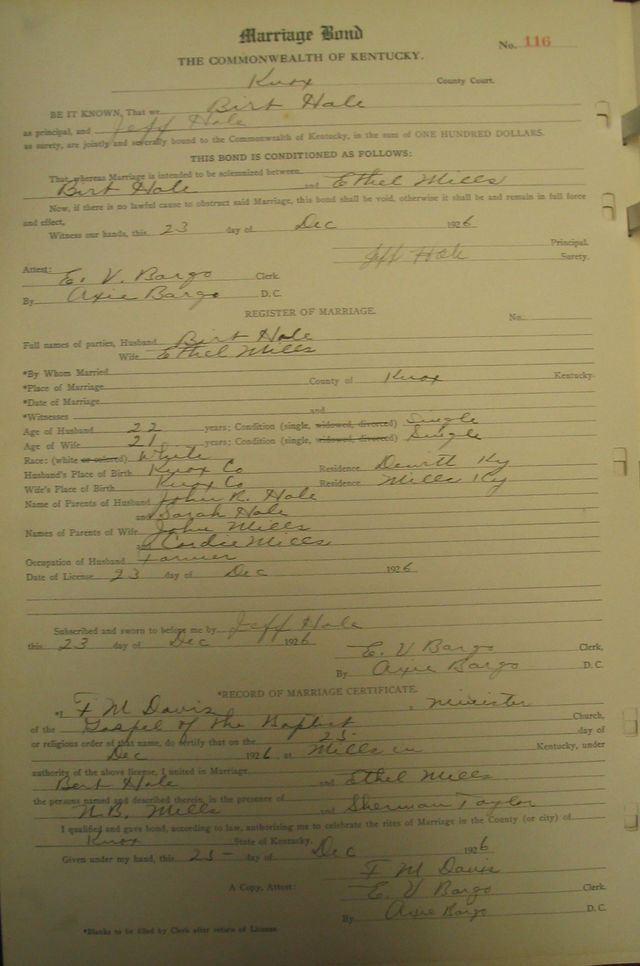 Marriage Bond
No. 116
THE COMMONWEALTH OF KENTUCKY.
Knox County Court.
BE IT KNOWN, That we Birt Hale
as principal, and Jeff Hale
as surety, are jointly and severally bound to the Commonwealth of Kentucky, in the sum of ONE HUNDRED DOLLARS.
THIS BOND IS CONDITIONED AS FOLLOWS:
That, whereas Marriage is intended to be solemnized between
Birt Hale and Ethel Mills
Now, if there is no lawful cause to obstruct said Marriage, this bond shall be void, otherwise it shall be and remain in full force
and effect,
Witness our hands, this 23 day of Dec 1926
Principal.
Jeff Hale Surety.
Attest:
E. V. Bargo Clerk.
By Axie Bargo D. C.
REGISTER OF MARRIAGE.
No.
Full names of parties, Husband Birt Hale
Wife Ethel Mills
*By Whom Married
*Place of Marriage County of Knox Kentucky.
*Date of Marriage
*Witnesses and
Age of Husband 22 years; Condition (single, widowed, divorced) Single
Age of Wife 21 years; Condition (single, widowed, divorced) Single
Race: (white or colored) White
Husband's Place of Birth Knox Co Residence Dewitt Ky
Wife's Place of Birth Knox Co Residence Mills Ky
Name of Parents of Husband John R. Hale
and Sarah Hale
Names of Parents of Wife John Mills
and Cordie Mills
Occupation of Husband Farmer
Date of License 23 day of Dec 1926
Subscribed and sworn to before me by Jeff Hale
this 23 day of Dec 1926
E. V Bargo Clerk,
By Axie Bargo D. C.
*RECORD OF MARRIAGE CERTIFICATE.
*I, F M Davis, Minister
of the Gospel of the Baptist Church,
or religious order of that name, do certify that on the 23 day of
Dec 1926 at Mills in Kentucky, under
authority of the above license, I united in Marriage
Bert Hale and Ethel Mills
the persons named and described therein, in the presence of
N. B. Mills and Sherman Taylor
I qualified and gave bond, according to law, authorising me to celebrate the rites of Marriage in the County (or city) of
Knox State of Kentucky.
Given under my hand, this 23 day of Dec 1926
F M Davis
A Copy, Attest: E. V Bargo Clerk.
By Axie Bargo D. C.
*Blanks to be filled by Clerk after return of License